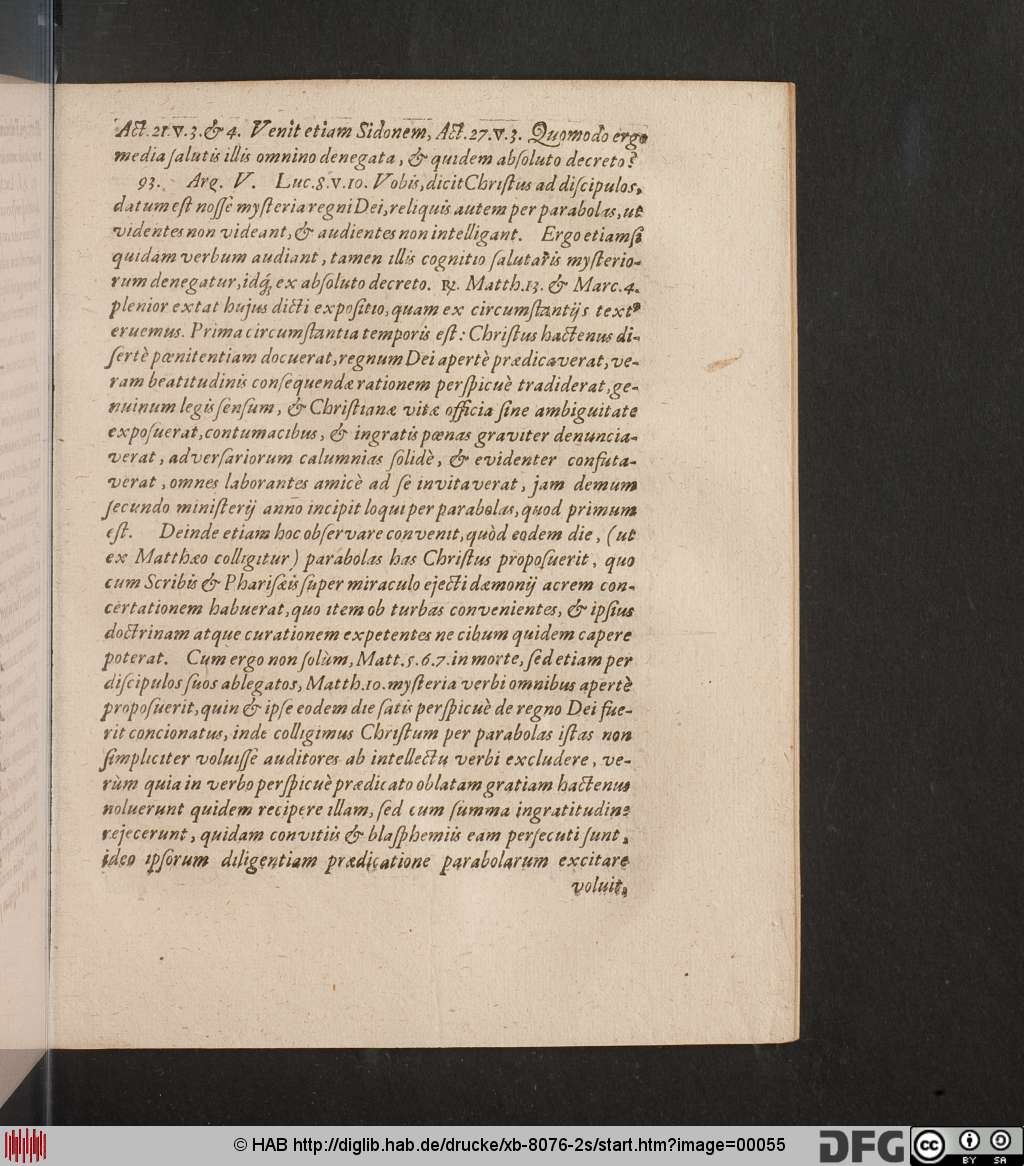 Act.21.v.3.& 4. Venit etiam Sidonem, Act.27.v.3. Quomodo ergo
media ſalutis illis omnino denegata, & quidem abſoluto decreto?
93. Arg. V. Luc.8.v.10. Vobis, dicit Chriſtus ad diſcipulos,
datum eſt noſſe myſteria regni Dei, reliquis autem per parabolas, ut
videntes non videant, & audientes non intelligant. Ergo etiamſi
quidam verbum audiant, tamen illis cognitio ſalutaris myſterio-
rum denegatur, idq́; ex abſoluto decreto. ℞. Matth.13. & Marc.4.
plenior extat hujus dicti expoſitio, quam ex circumſtantijs textꝰ
eruemus. Prima circumſtantia temporis eſt: Chriſtus hactenus di-
ſertè pœnitentiam docuerat, regnum Dei apertè prædicaverat, ve-
ram beatitudinis conſequendæ rationem perſpicuè tradiderat, ge-
nuinum legis ſenſum, & Chriſtianæ vitæ officia ſine ambiguitate
expoſuerat, contumacibus, & ingratis pœnas graviter denuncia-
verat, adverſariorum calumnias ſolidè, & evidenter confuta-
verat, omnes laborantes amicè ad ſe invitaverat, jam demum
ſecundo miniſterij anno incipit loqui per parabolas, quod primum
eſt. Deinde etiam hoc obſervare convenit, quòd eodem die, (ut
ex Matthæo colligitur) parabolas has Chriſtus propoſuerit, quo
cum Scribis & Phariſæis ſuper miraculo ejecti dæmonij acrem con-
certationem habuerat, quo item ob turbas convenientes, & ipſius
doctrinam atque curationem expetentes ne cibum quidem capere
poterat. Cum ergo non ſolùm, Matt.5.6.7. in morte, ſed etiam per
diſcipulos ſuos ablegatos, Matth.10. myſteria verbi omnibus apertè
propoſuerit, quin & ipſe eodem die ſatis perſpicuè de regno Dei fue-
rit concionatus, inde colligimus Chriſtum per parabolas iſtas non
ſimpliciter voluiſſe auditores ab intellectu verbi excludere, ve-
rùm quia in verbo perſpicuè prædicato oblatam gratiam hactenus
noluerunt quidem recipere illam, ſed cum ſumma ingratitudine
rejecerunt, quidam convitiis & blaſphemiis eam perſecuti ſunt,
ideo ipſorum diligentiam prædicatione parabolarum excitare
voluit,
© HAB http://diglib.hab.de/drucke/xb-8076-2s/start.htm?image=00055
DFG
cc BY SA